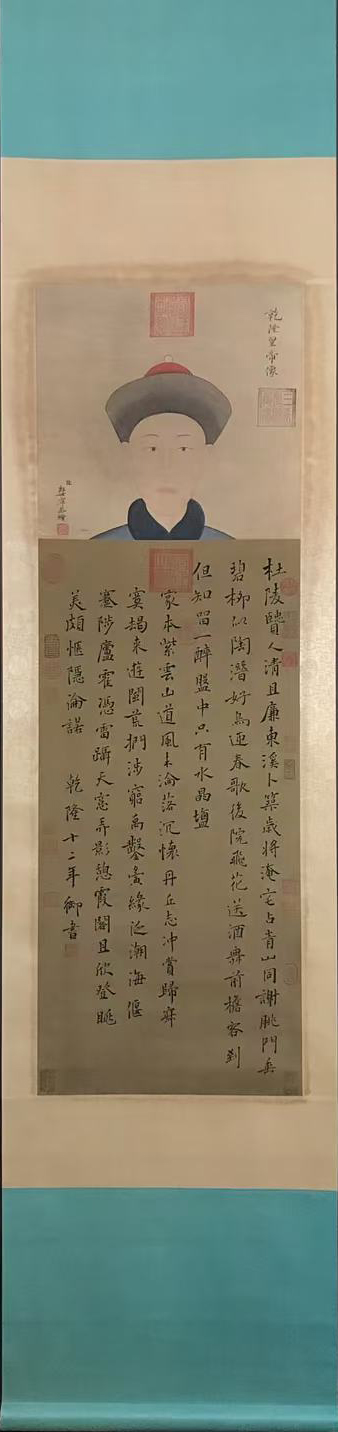 乾隆皇帝像
杜陵賢人清且廉東溪卜築歲將淹宅占青山同謝朓門垂
碧柳似陶潛好鳥迎春歌後院飛花送酒舞前檐客到
但知留一醉盤中只有水晶鹽
家本紫雲山道風未淪落沉懷丹丘志沖賞歸寂
寞朅來遊閩荒捫涉窮禹鑿夤緣泛潮海偃
蹇陟廬霍憑雷躡天窗弄影憩霞閣且欣登眺
美頗愜隱淪諾 乾隆十二年御書